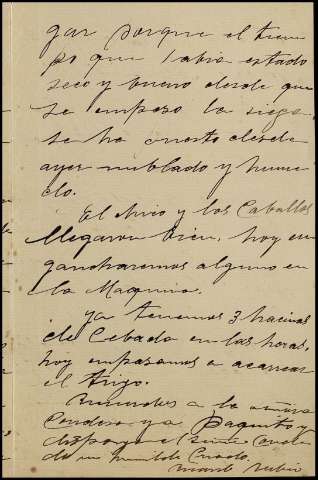 gar porque el tiem
po que abia estado
seco y bueno desde que
se empeso la siega
se ha puesto desde
ayer nublado y hume
do.
El chico y los Caballos
llegaron bien, hoy en
gancharemos alguno en
la Maquina.
Ya tenemos 3 hacinas
de Cebada en las heras,
hoy empesamos a acarrear
el trigo.
Recuerdos a la señora
Condesa y a Paquito y
disponga el señor Conde
de su humilde Criado.
Rubio